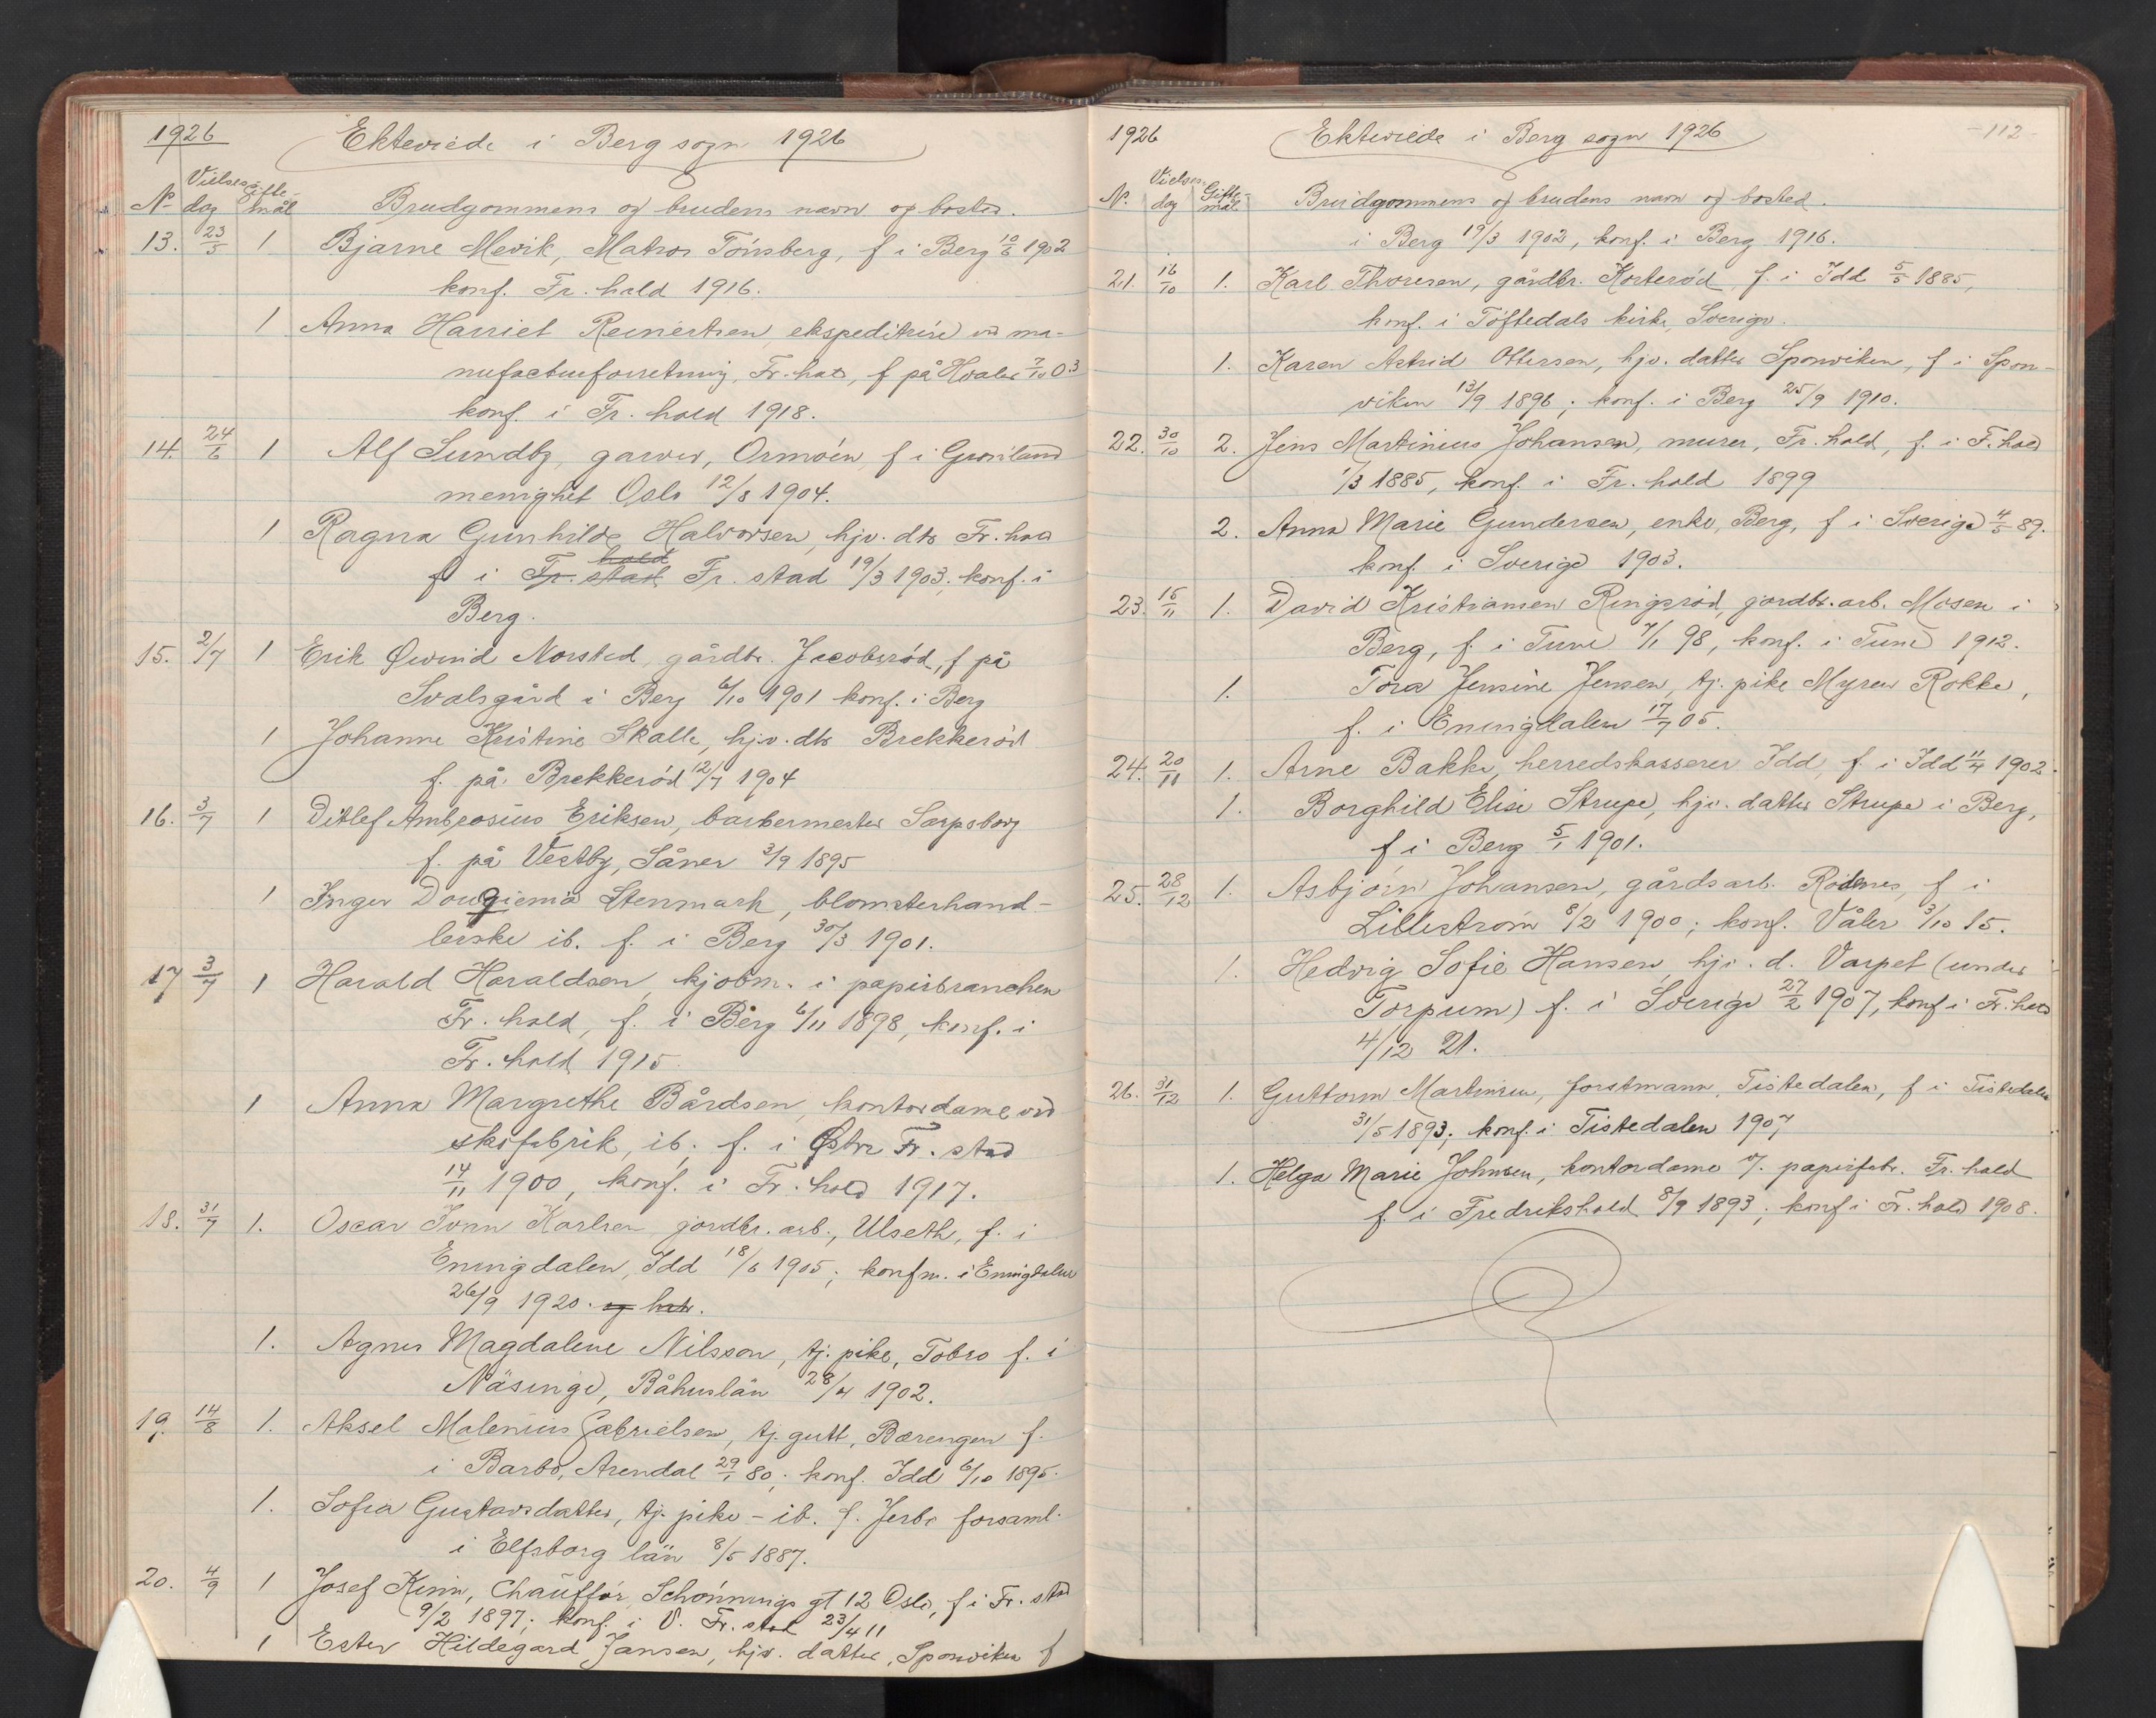 1926 Ekteviede i Berg sogn 1926
No Vielses dag Gifte- mål Brudgommens og brudens navn og bosted.
13. 23/5 1 Bjarne Mevik, Matros Tönsberg, f i Berg 10/6 1902
konf. Fr. hald 1916.
1 Anna Harriet Reinertsen, ekspeditrise ved ma-
nufacturforretning, Fr. hald, f på Hvaler 7/10 03
konf. i Fr. hald 1918.
14. 24/6 1 Alf Sundby, garver, Ormöen, f i Grönland
menighet Oslo 12/8 1904.
1 Ragna Gunhilde Halvorsen, hjv. dtr Fr. hald
f i Fr. stad hald Fr. stad 19/3 1903; konf. i
Berg.
15. 2/7 1 Erik Øivind Norsted, gårdbr. Jacobsröd, f på
Svalsgård i Berg 6/10 1901 konf. i Berg
1 Johanne Kristine Skalle, hjv. dtr Brekkeröd
f. på Brekkeröd 12/7 1904
16. 3/7 1 Ditlef Ambrosius Eriksen, barbermester Sarpsborg
f. på Vestby, Såner 3/9 1895
1 Inger Stenmark, blomsterhand-
lerske ib. f. i Berg 30/3 1901.
17 3/7 1 Harald Haraldsen, kjöbm. i papirbranchen
Fr. hald, f. i Berg 6/11 1898, konf. i
Fr. hald 1915
1 Anna Margrethe Bårdsen, kontordame ved
skofabrik, ib; f. i Østre Fr. stad
14/11 1900, konf. i Fr. hald 1917.
18. 31/7 1. Oscar Ivan Karlsen jordbr. arb., Ulseth, f. i
Enningdalen, Idd 18/6 1905; konfm. i Enningdalen
26/9 1920. og hatr.
1. Agnes Magdalene Nilsson, tj. pike, Tobro f. i
Näsinge, Båhuslän 28/4 1902.
19. 14/8 1. Aksel Malenius Gabrielsen, tj. gutt, Bærengen f.
i Barbo, Arendal 29/1 80; konf. Idd 6/10 1895.
1. Sofia Gustavsdatter, tj. pike - ib. f. Jerbo forsaml.
i Elfsborg län 8/5 1887.
20. 4/9 1 Josef Kinn, Chaufför, Schönnings gt 12 Oslo, f i Fr. stad
9/2 1897; konf. i V. Fr. stad 23/4 11
1 Ester Hildegard Jansen, hjv. datter, Sponviken f
1926 Ekteviede i Berg sogn 1926 -112-
No. Vielses- dag Gifte- mål Brudgommens og brudens navn og bosted.
i Berg 19/3 1902, konf. i Berg 1916.
21. 16/10 1. Karl Thoresen, gårdbr. Korteröd, f. i Idd 5/5 1885,
konf. i Töftedals kirke, Sverige.
1. Karen Astrid Ottersen, hjv. datter Sponviken, f i Spon-
viken 13/9 1896; konf. i Berg 25/9 1910.
22. 30/10 2. Jens Martinius Johansen, murer, Fr. hald, f. i F. hald
1/3 1885, konf. i Fr. hald 1899
2. Anna Marie Gundersen, enke, Berg, f i Sverige 4/5 89.
konf. i Sverige 1903.
23. 15/11 1. David Kristiansen Ringsröd, jordbr. arb. Mosen i
Berg, f. i Tune 7/1 98, konf. i Tune 1912.
1. Tora Jensine Jensen, tj. pike Myren Rokke,
f. i Enningdalen 17/7 05.
24. 20/11 1. Arne Bakke, herredskasserer Idd, f. i Idd 11/4 1902.
1. Borghild Elise Strupe, hjv. datter Strupe i Berg,
f i Berg 5/1 1901.
25. 28/12 1. Asbjörn Johansen, gårdsarb. Rödenes, f i
Lilleström 8/2 1900; konf. Våler 3/10 15.
1. Hedvig Sofie Hansen, hjv. d. Varpet (under
Torpum) f. i Sverige 27/2 1907, konf i Fr. hald
4/12 21.
26. 31/12 1. Guttorm Martinsen, forstmann, Tistedalen, f i Tistedalen
31/5 1893; konf. i Tistedalen 1907
1. Helga Marie Johnsen, kontordame v. papirfabr. Fr. hald
f. i Fredrikshald 8/9 1893; konf i Fr. hald 1908.